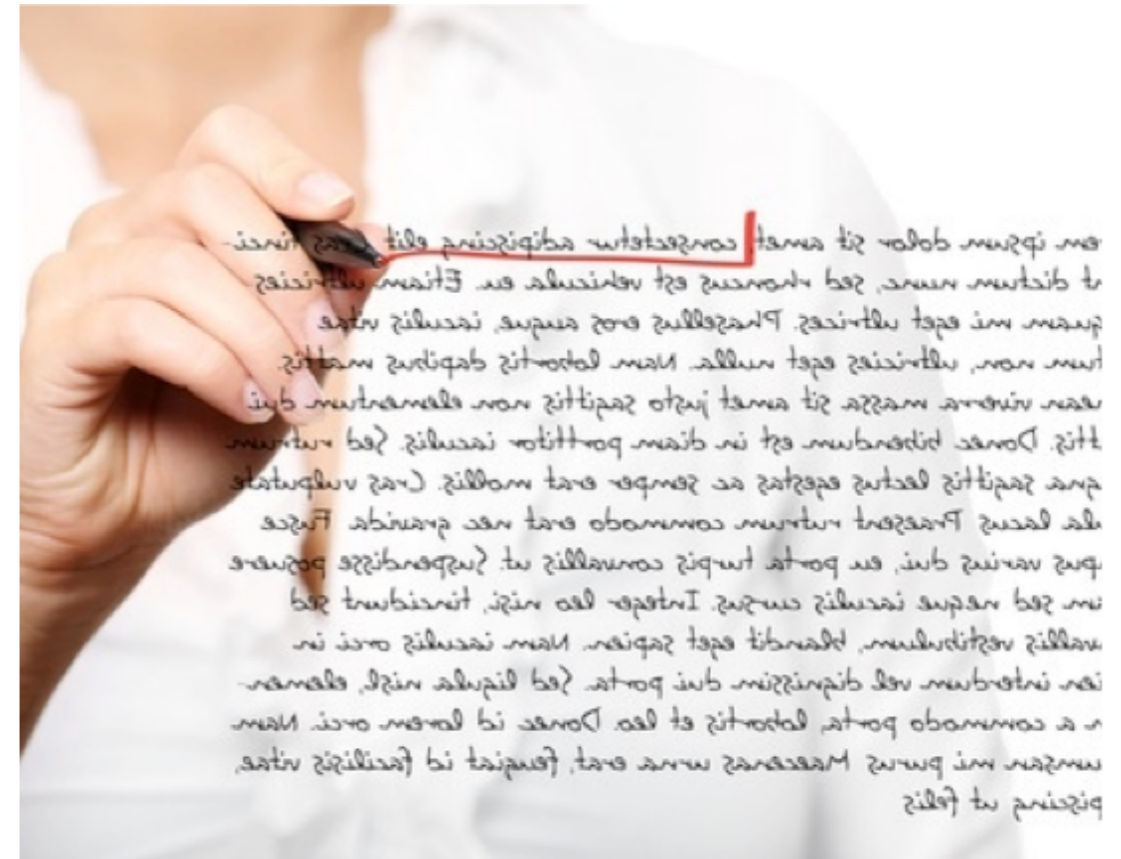 em ipsum dolor sit amet, consectetur adipiscing elit. Cras tinci-
t dictum nunc, sed rhoncus est vehicula eu. Etiam ultricies
quam mi eget ultrices. Phasellus eros augue, iaculis vitae
tum non, ultricies eget nulla. Nam lobortis dapibus mattis.
ean viverra massa sit amet justo sagittis non elementum dui
ttis. Donec bibendum est in diam porttitor iaculis. Sed rutrum
gna sagittis lectus egestas ac semper erat mollis. Cras vulputate
ula lacus. Praesent rutrum commodo erat nec gravida. Fusce
pus varius dui, eu porta turpis convallis ut. Suspendisse posuere
im sed neque iaculis cursus. Integer leo nisi, tincidunt sed
vallis vestibulum, blandit eget sapien. Nam iaculis orci in
ien interdum vel dignissim dui porta. Sed ligula nisl, elemen-
n a commodo porta, lobortis et leo. Donec id lorem orci. Nam
umsan mi purus. Maecenas urna erat, feugiat id facilisis vitae,
piscing ut felis